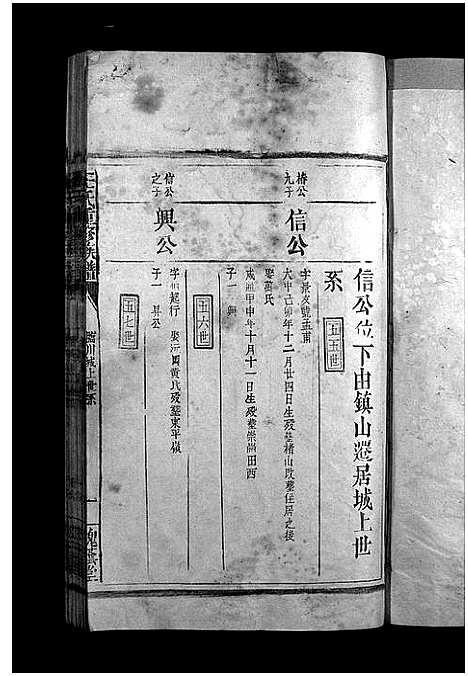 信公位下由鎮山遷居城上世
系
五五世
椿公
九子
信公
字景友號孟甫
大中己卯年十二月廿四日生歿葬楮山改葬住居之後
娶萬氏
咸通甲申年十月十一日生歿葬崇尚田西
子一 興
五六世
信公
之子
興公
字 起行 娶 黄氏歿葬東平嶺
子一 昇公
五七世
臨川城上世系
一